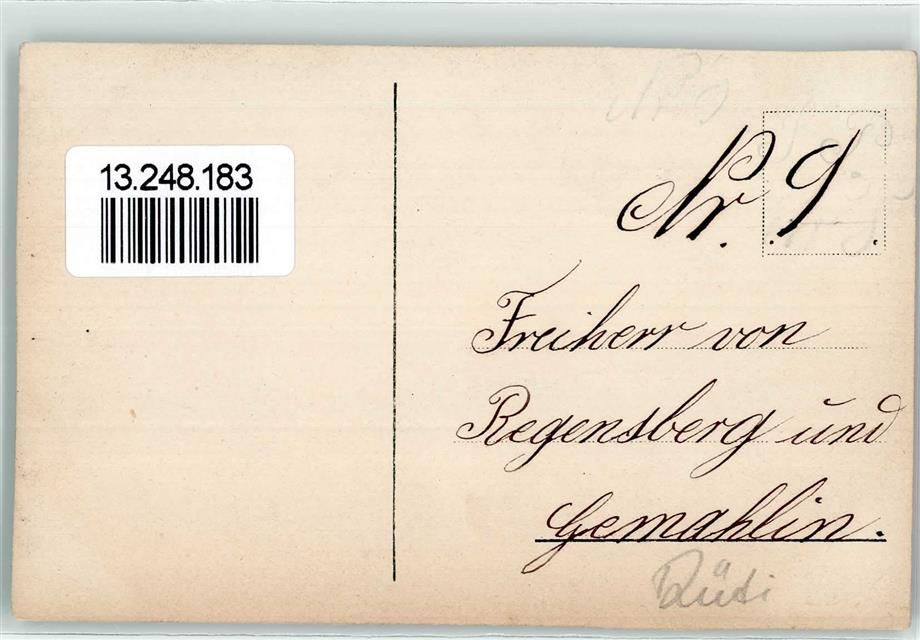 13.248.183
Nr. 9.
Freiherr von
Regensberg und
Gemahlin.
Rüti